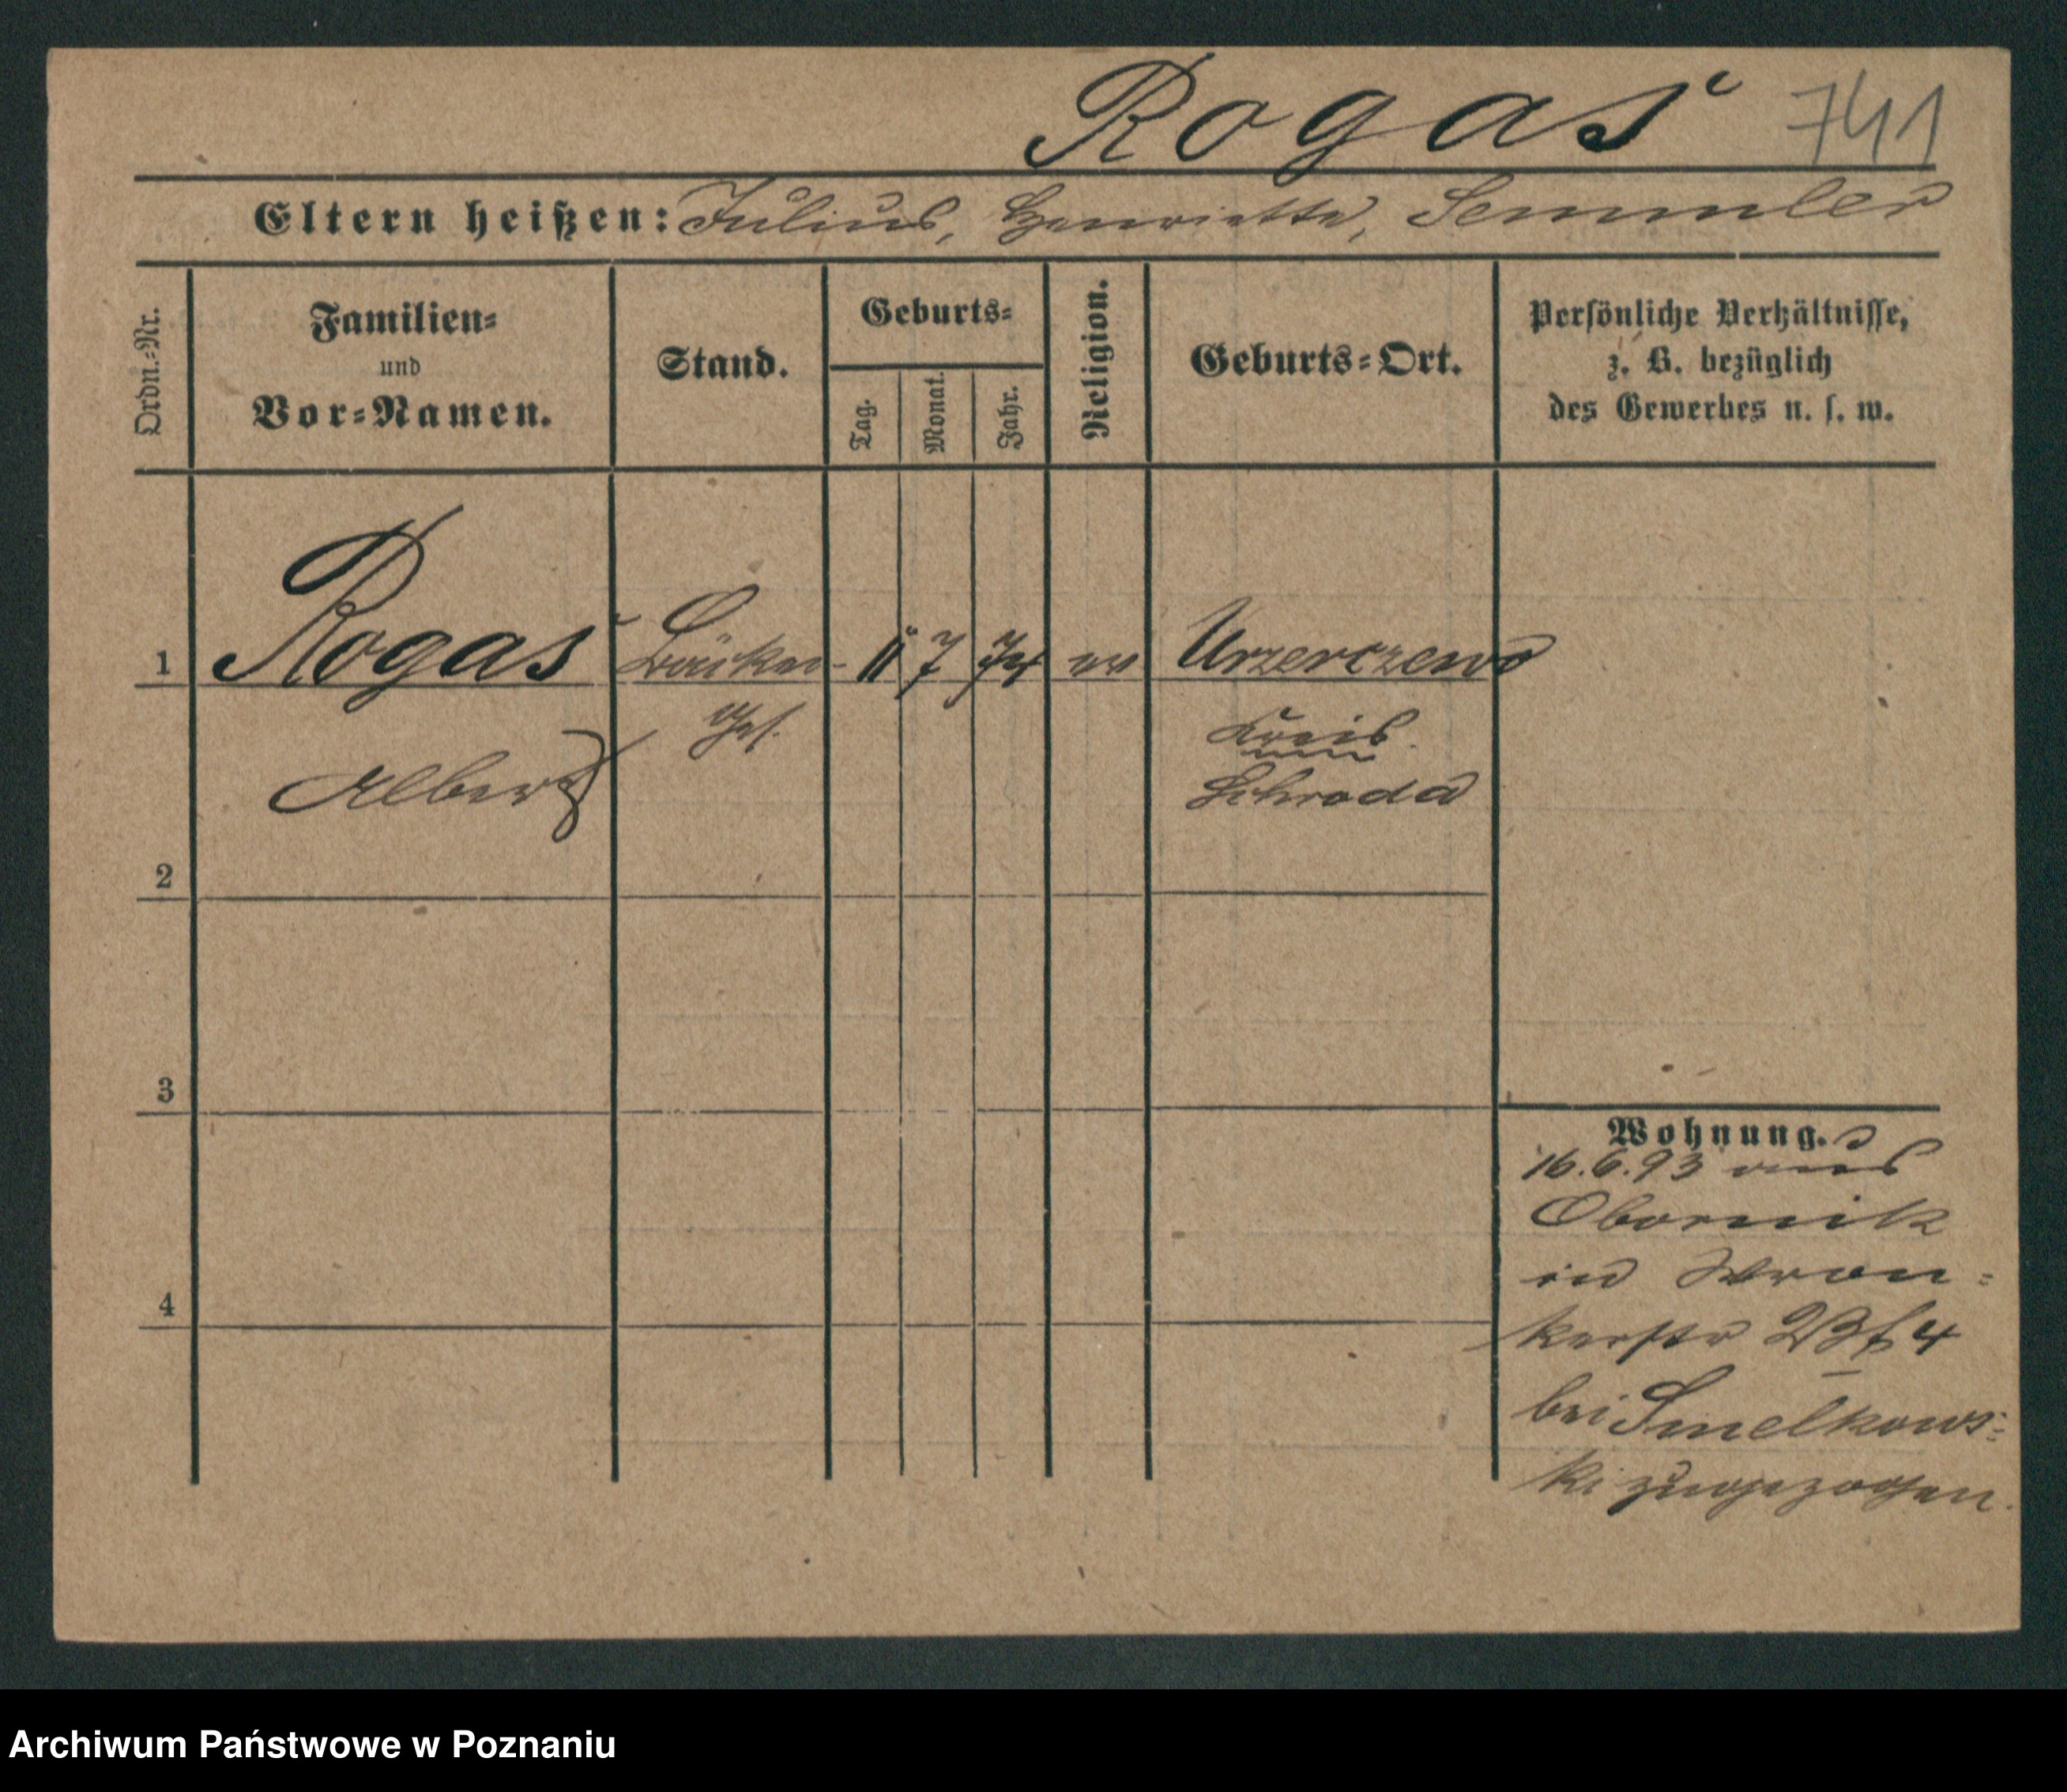 Rogas 741
Eltern heißen: Julius, Henriette, Semmler
Ordn.-Nr.
Familien-
und
Vor-Namen.
Stand.
Geburts-
Tag.
Monat.
Jahr.
Religion.
Geburts-Ort.
Persönliche Verhältnisse,
z. B. bezüglich
des Gewerbes u. s. w.
1 Rogas Bäcker- 11 7 74 ev Urzerczewo
Ges. Kreis
Albert Schroda
2
3
4
Wohnung.
16.6.93 aus
Obornik
in Wron-
kerstr 4
bei Smelkows-
ki zugezogen.
Archiwum Państwowe w Poznaniu